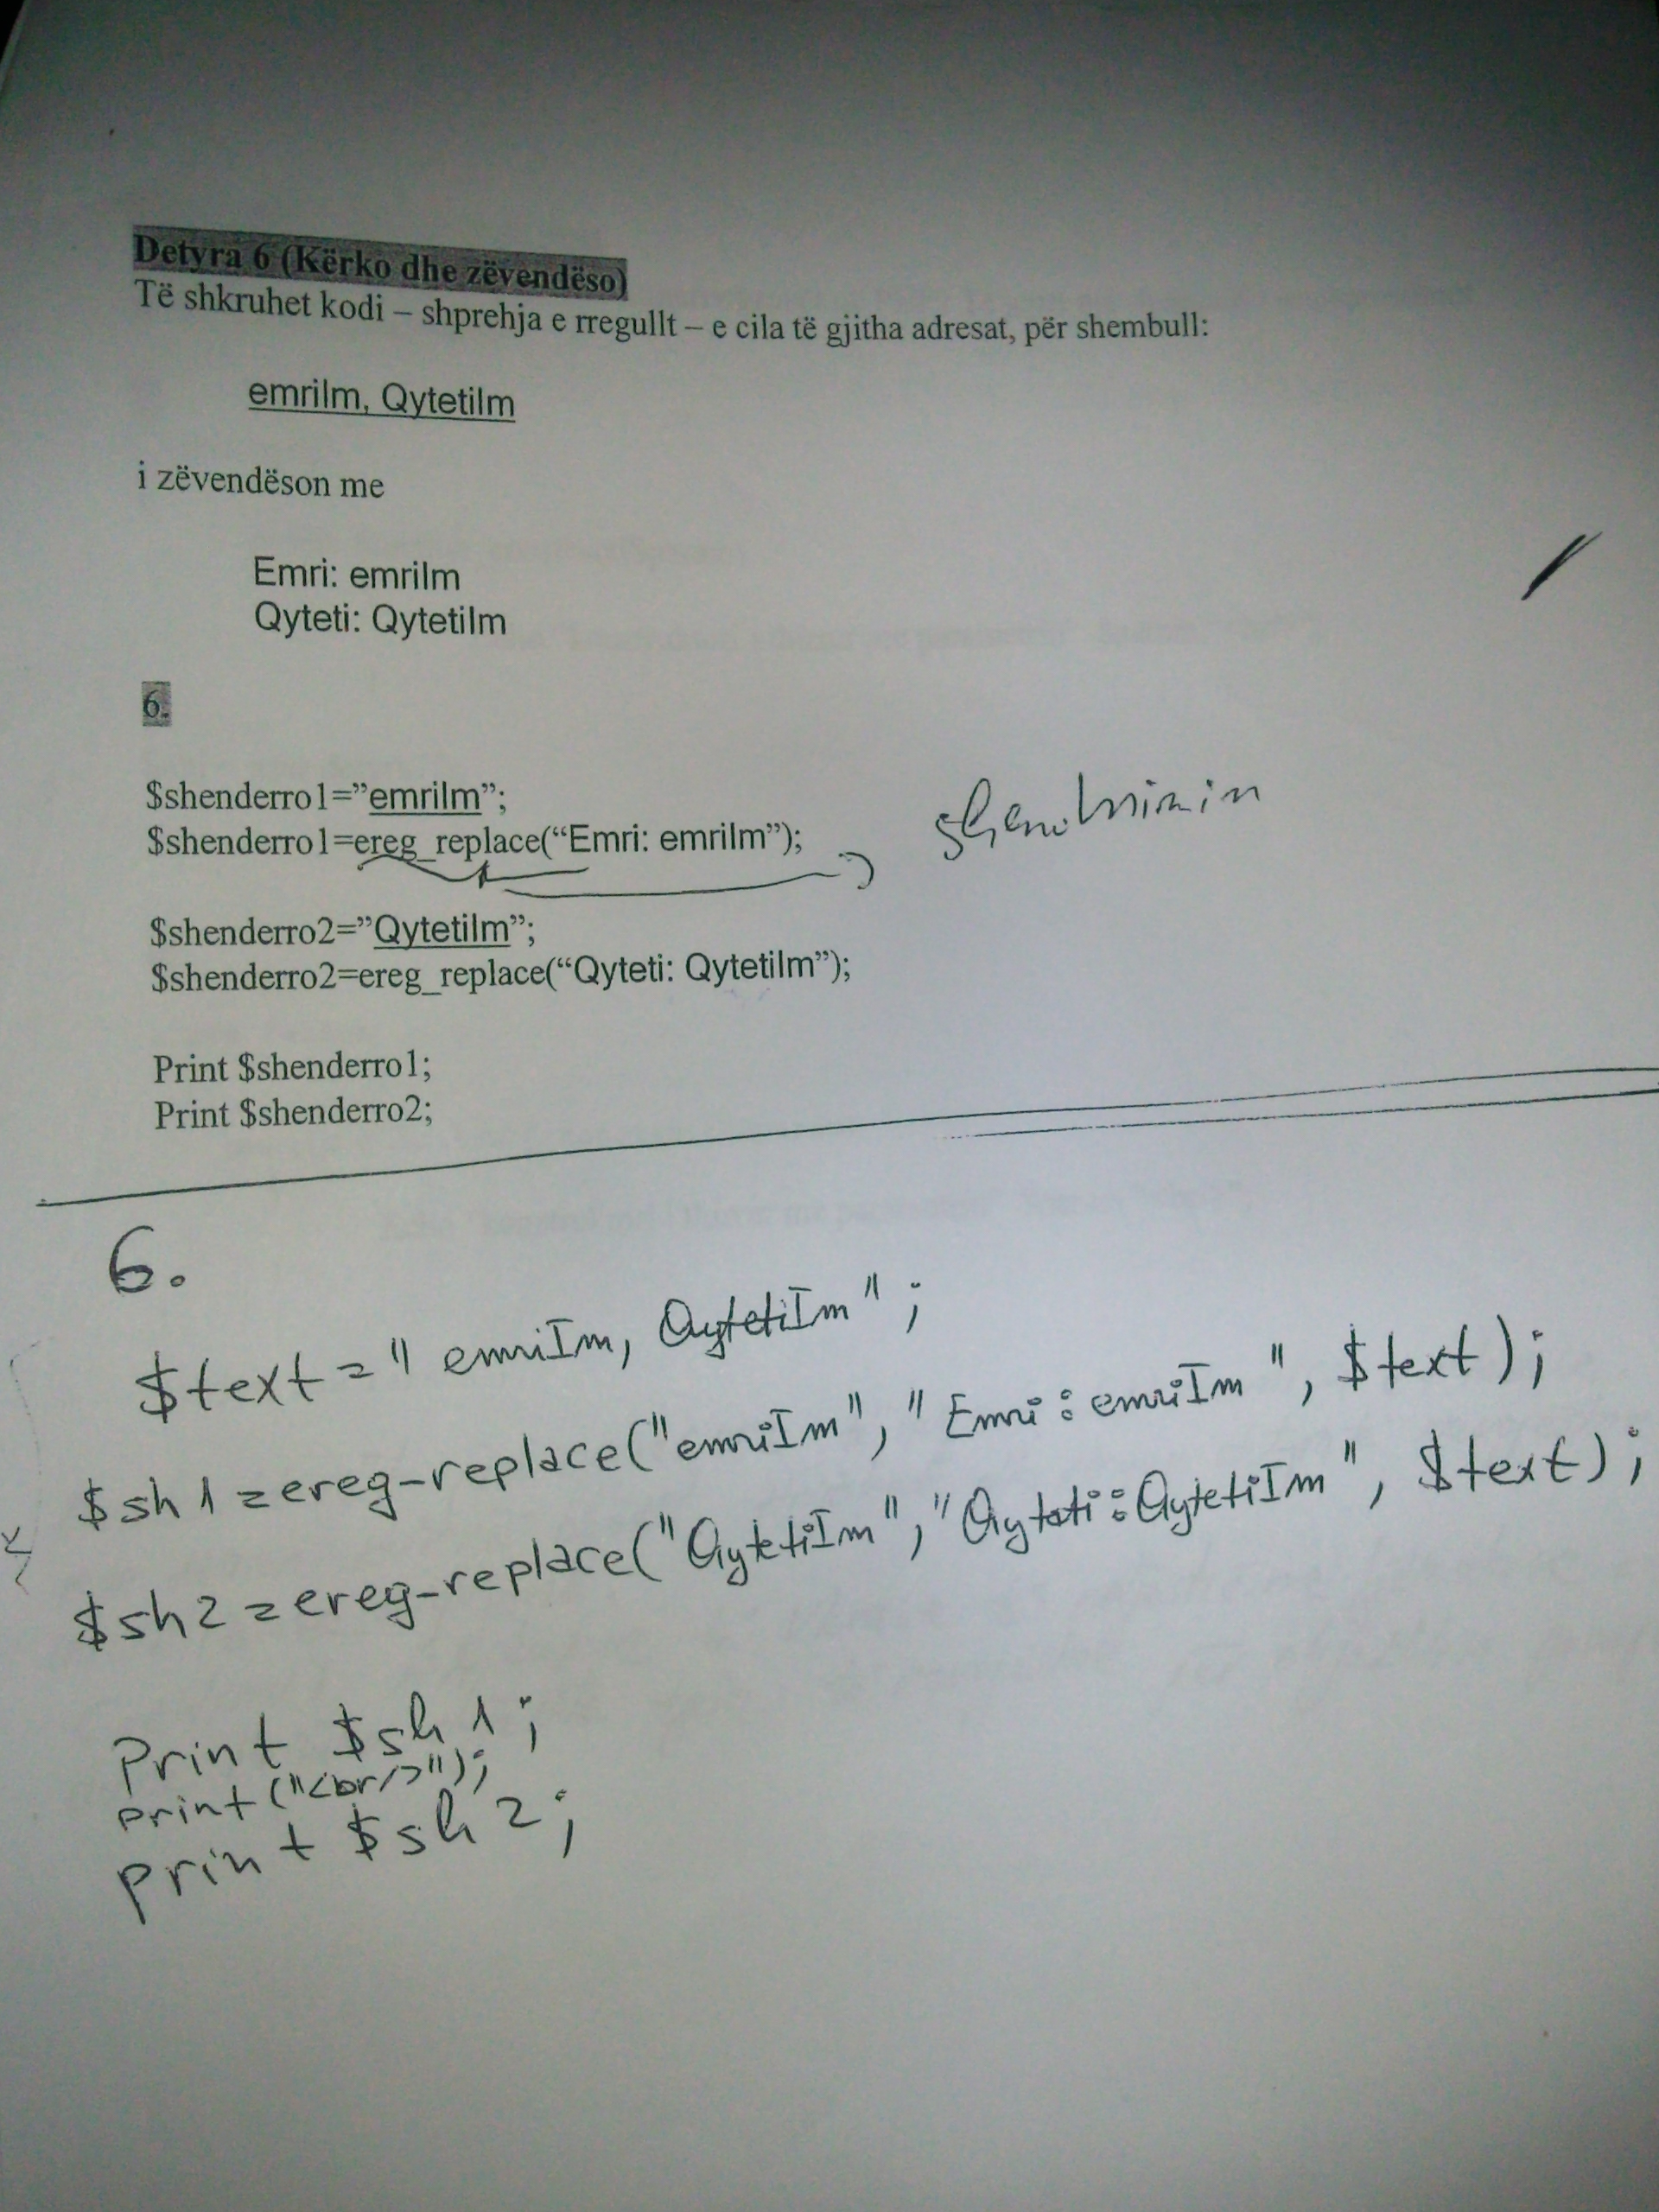 Detyra 6 (Kërko dhe zëvendëso)
Të shkruhet kodi – shprehja e rregullt – e cila të gjitha adresat, për shembull:
emriIm, QytetiIm
i zëvendëson me
Emri: emriIm
Qyteti: QytetiIm
6.
$shenderro1=”emriIm”;
$shenderro1=ereg_replace(“Emri: emriIm”);
$shenderro2=”QytetiIm”;
$shenderro2=ereg_replace(“Qyteti: QytetiIm”);
Print $shenderro1;
Print $shenderro2;
6.
$text = " emriIm, QytetiIm " ;
$sh1 = ereg-replace("emriIm", "Emri : emriIm ", $text) ;
$sh2 = ereg-replace("QytetiIm", "Qyteti : QytetiIm ", $text) ;
Print $sh1 ;
print ("<br/>");
print $sh2 ;